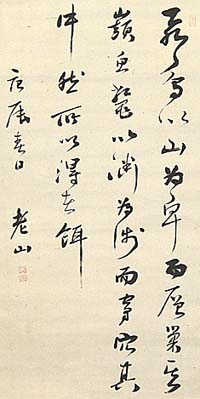 飛鳥以山為卑而層巢其
巔魚鼈以淵為淺而穿穴其
中然所以得者餌
庚辰春日 老山